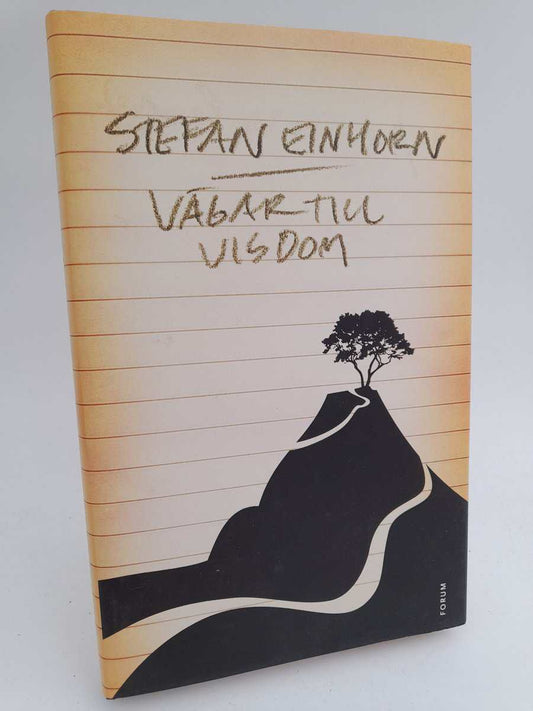 STEFAN EINHORN
VÄGAR TILL
VISDOM
FORUM